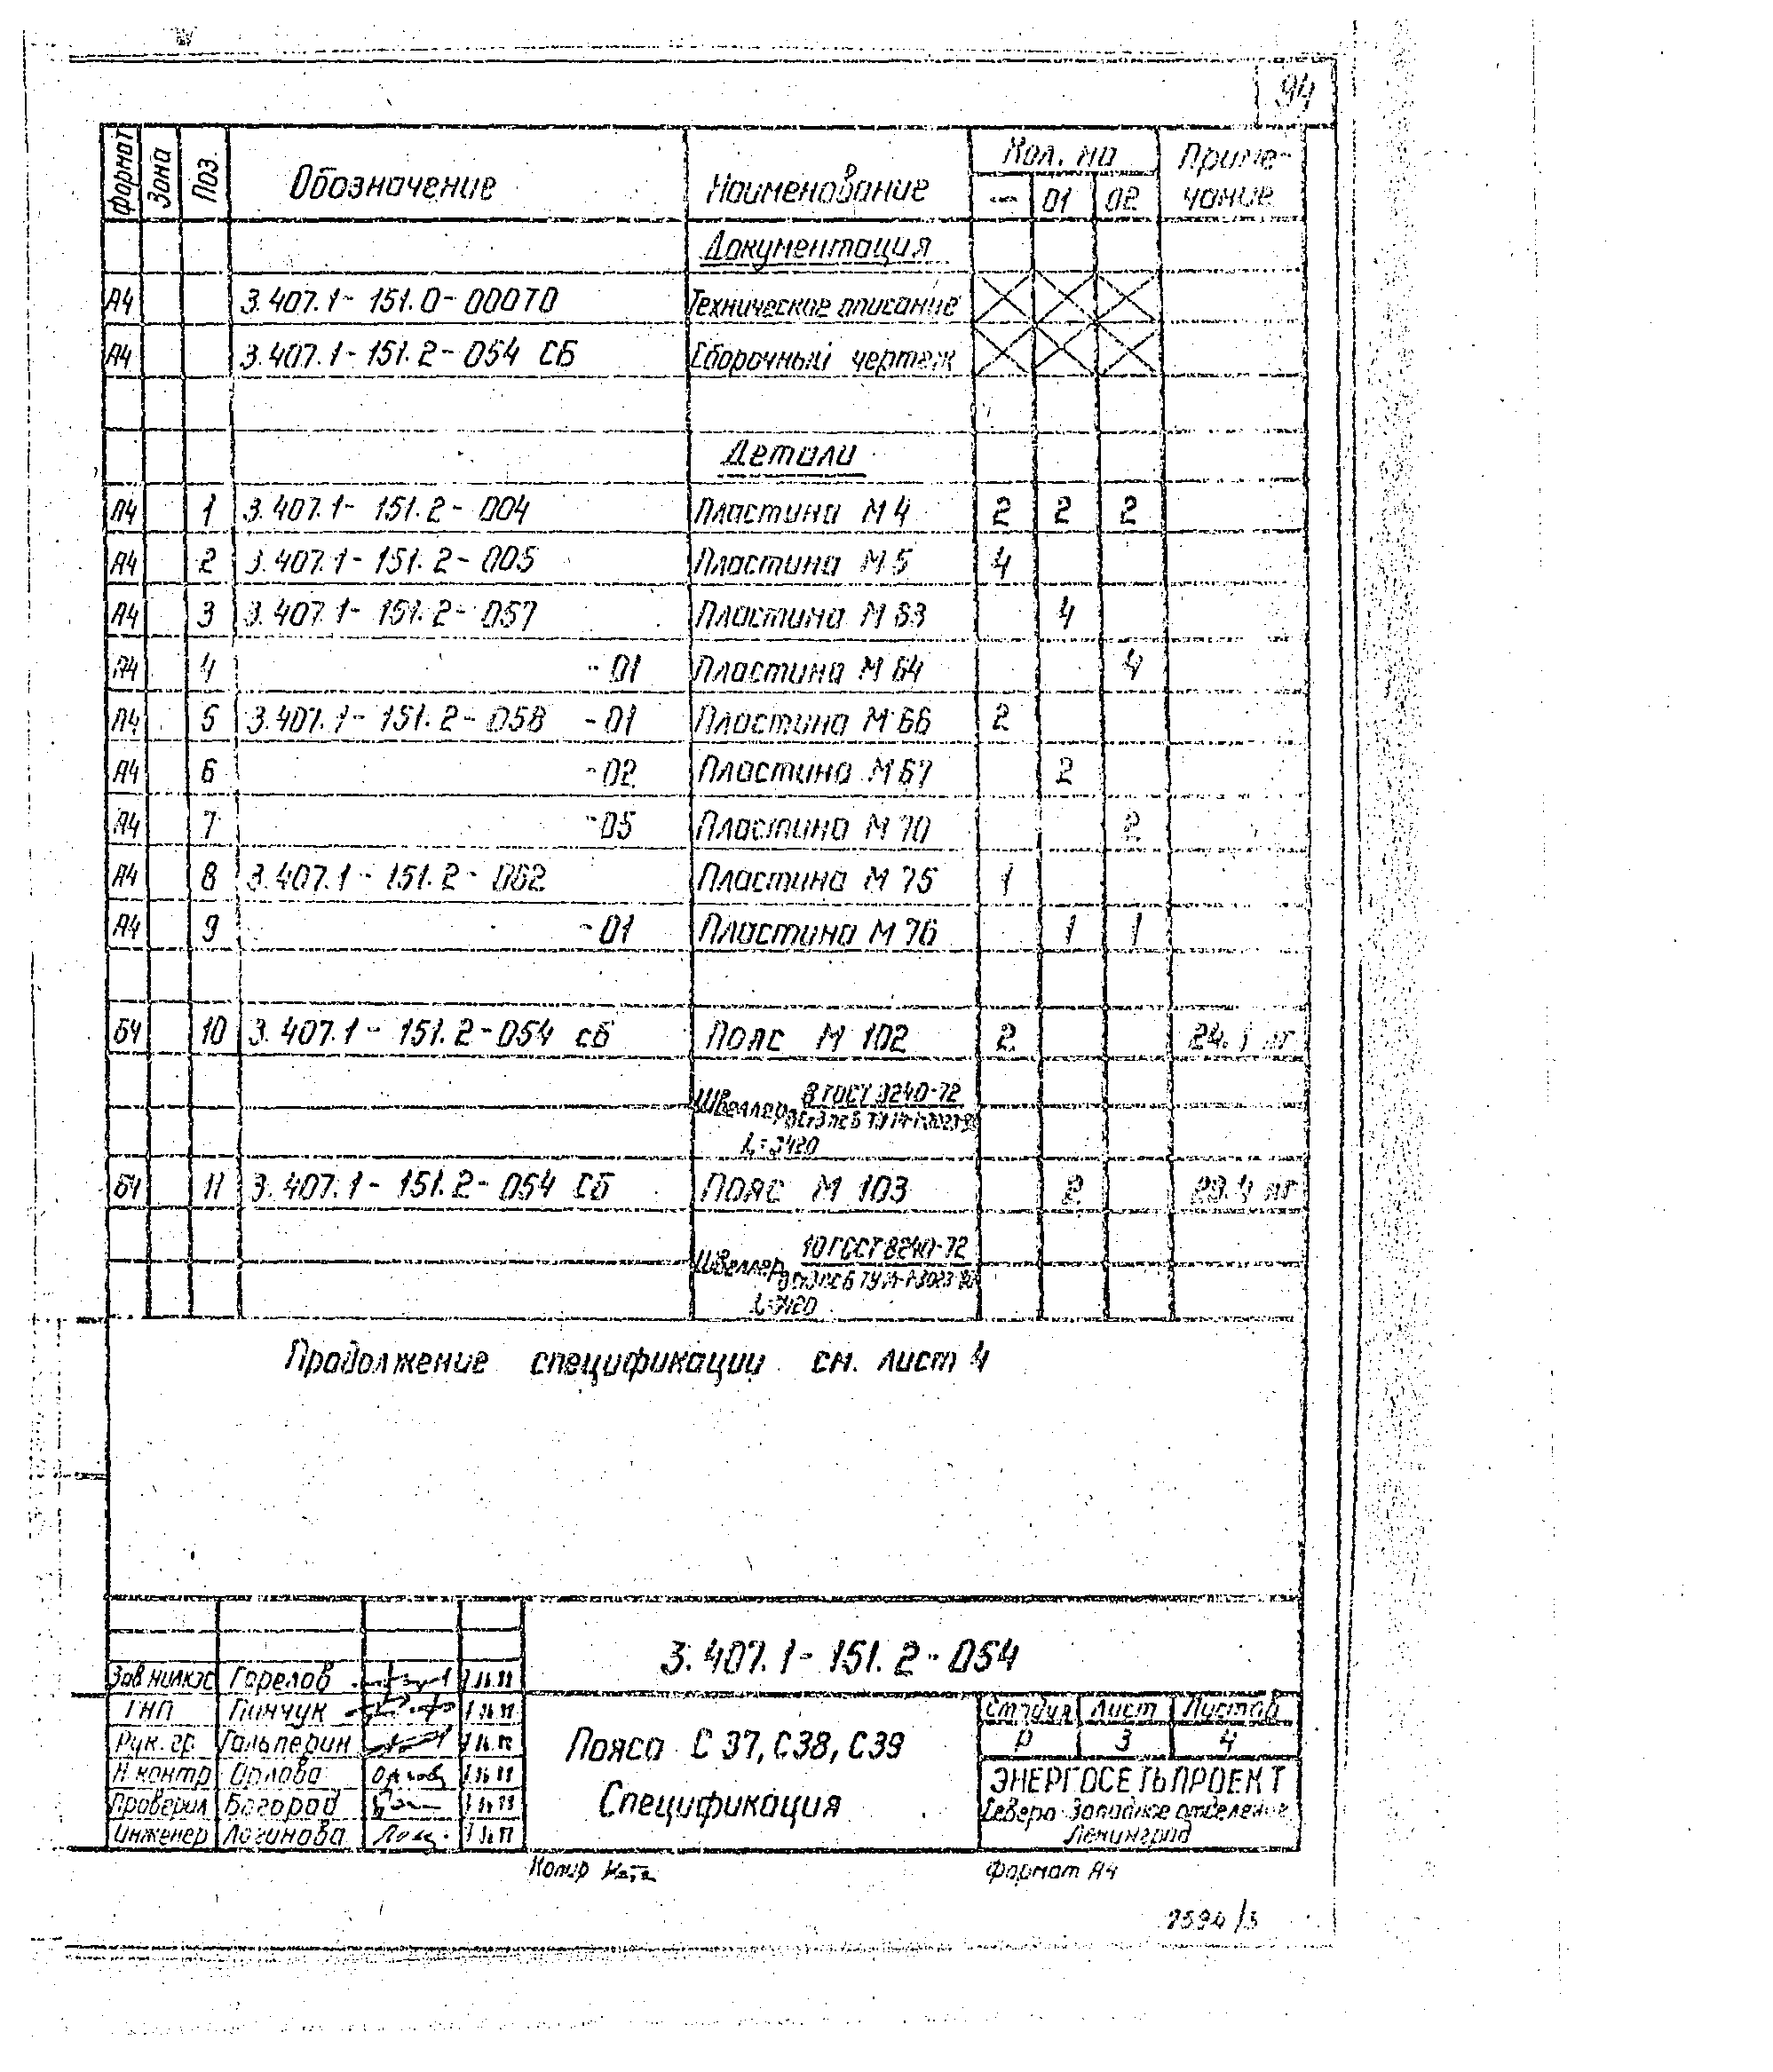 94
Формат Зона Поз. Обозначение Наименование Кол. на Приме-
— 01 02 чание
Документация
А4 3.407.1- 151.0- 000ТО Техническое описание
А4 3.407.1- 151.2- 054 СБ Сборочный чертеж
Детали
А4 1 3.407.1- 151.2- 004 Пластина М 4 2 2 2
А4 2 3.407.1- 151.2- 005 Пластина М 5 4
А4 3 3.407.1- 151.2- 057 Пластина М 63 4
А4 4 -01 Пластина М 64 4
А4 5 3.407.1- 151.2- 058 -01 Пластина М 66 2
А4 6 -02 Пластина М 67 2
А4 7 -05 Пластина М 70 2
А4 8 3.407.1- 151.2- 062 Пластина М 75 1
А4 9 -01 Пластина М 76 1 1
БЧ 10 3.407.1- 151.2- 054 СБ Пояс М 102 2 24.1 кг
Швеллер 8 ГОСТ 8240-72
L=3420
БЧ 11 3.407.1- 151.2- 054 СБ Пояс М 103 2 29.4 кг
Швеллер 10 ГОСТ 8240-72
L=3420
Продолжение спецификации см. лист 4
3.407.1- 151.2- 054
Зав НИЛКЭС Горелов
ГИП Пинчук
Рук. гр Гальперин
Н контр Орлова
Проверил Богорад
Инженер Логинова
Пояса С 37, С38, С39
Спецификация
Стадия Лист Листов
Р 3 4
ЭНЕРГОСЕТЬПРОЕКТ
Северо-Западное отделение
Ленинград
Копир
Формат А4